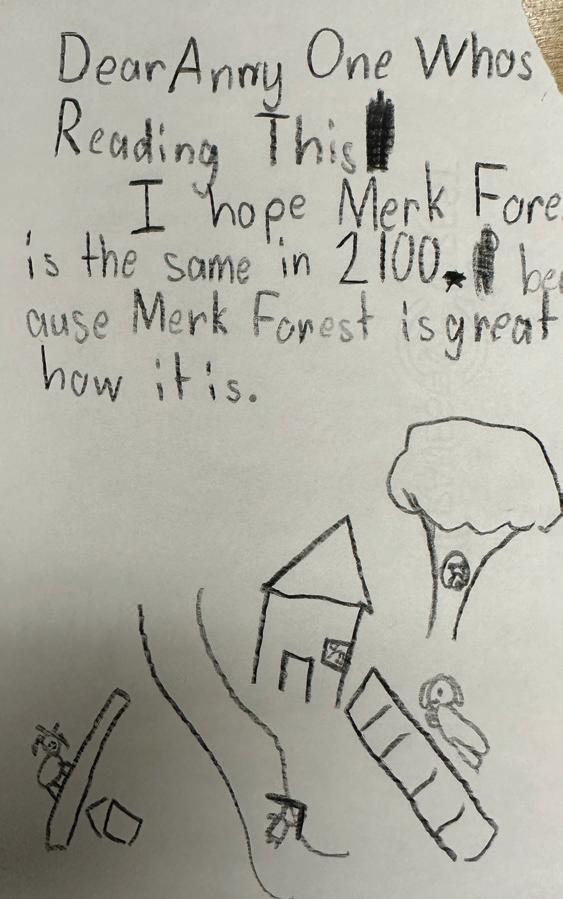 Dear Anny One Whos
Reading This
I hope Merk Fore
is the same in 2100. be
ause Merk Forest is great
how it is.